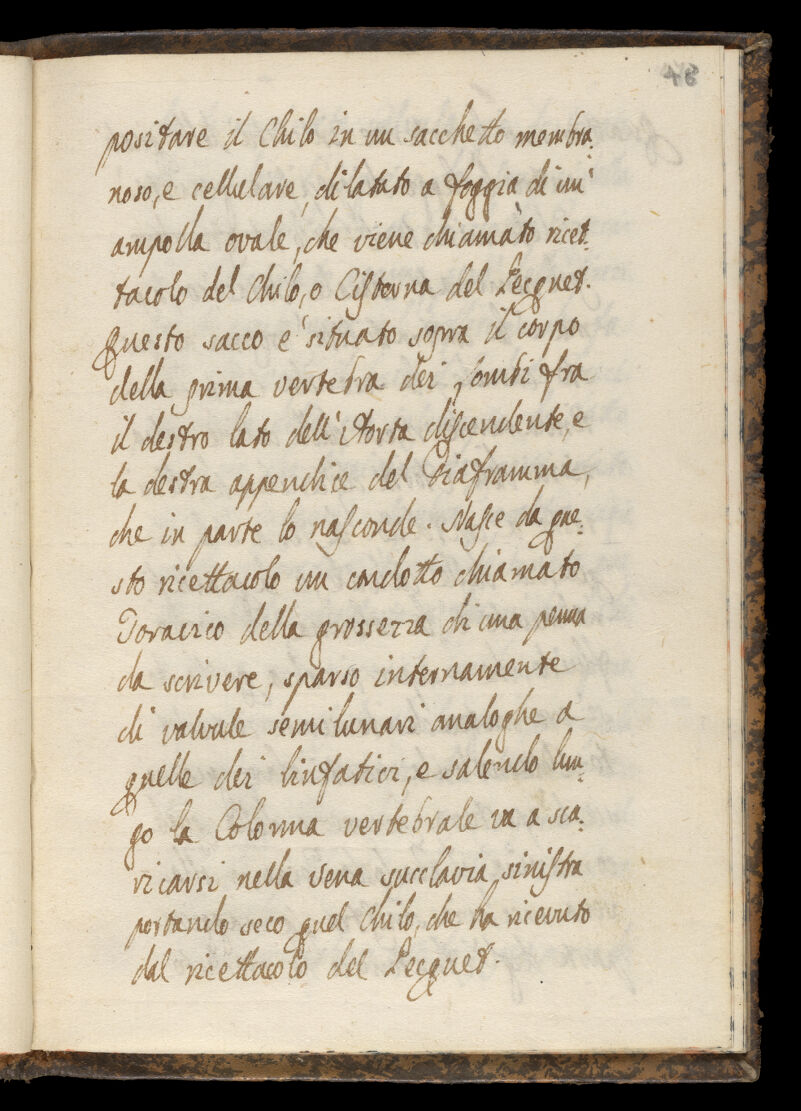 34
positare il Chilo in un sacchetto membra-
noso, e cellulare, dilatato a foggia di un'
ampolla ovale, che viene chiamato ricet-
tacolo del Chilo, o Cisterna del Pecquet.
Questo sacco e' situato sopra il corpo
della prima vertebra dei Lombi fra
il destro lato dell'Aorta discendente, e
la destra appendice del Diaframma,
che in parte lo nasconde. Nasce da que-
sto ricettacolo un condotto chiamato
Toracico della grossezza di una penna
da scrivere, sparso internamente
di valvule semilunari analoghe a
quelle dei linfatici, e salendo lun-
go la Colonna vertebrale va a sca-
ricarsi nella vena succlavia sinistra
portando seco quel Chilo, che ha ricevuto
dal ricettacolo del Pecquet.